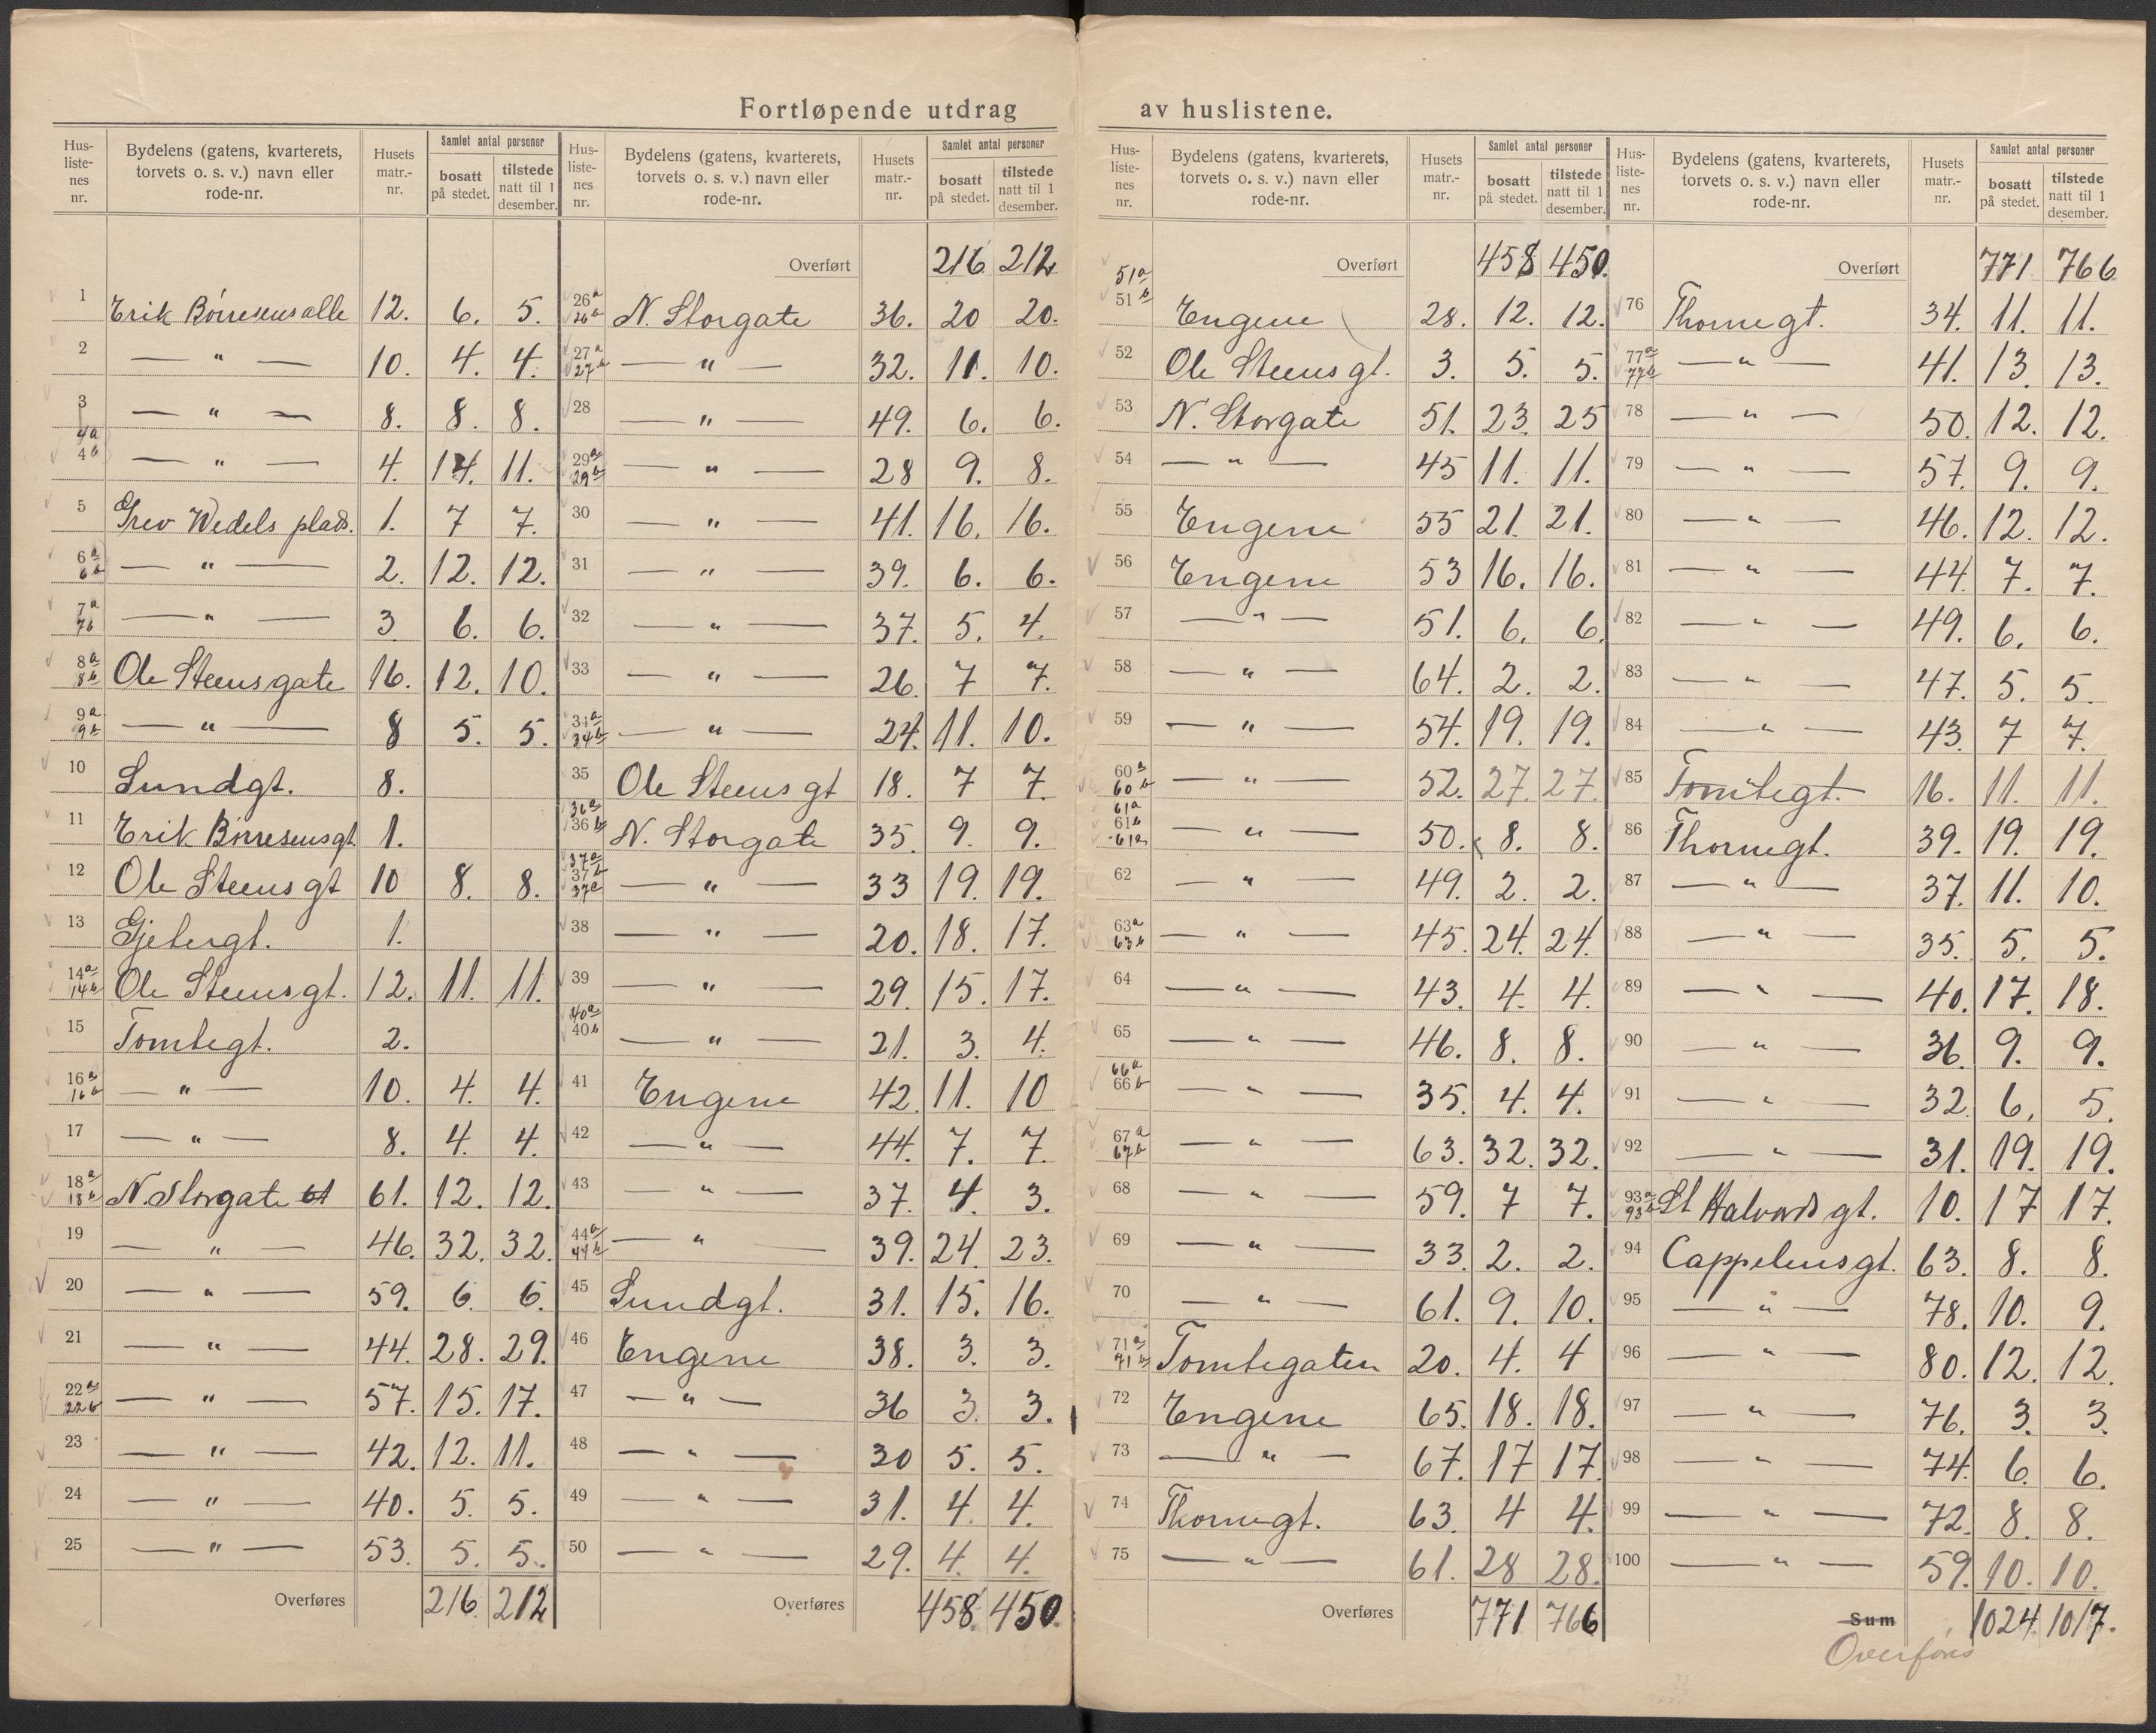 Fortløpende utdrag av huslistene.
Hus-liste-nes nr. | Bydelens (gatens, kvarterets, torvets o. s. v.) navn eller rode-nr. | Husets matr.-nr. | Samlet antal personer bosatt på stedet. | tilstede natt til 1 desember.
1 Erik Börresens alle 12. 6. 5.
2 — " — 10. 4. 4.
3 — " — 8. 8. 8.
4a 4b — " — 4. 14. 11.
5 Grev Wedels plads. 1. 7 7.
6a 6b — " — 2. 12. 12.
7a 7b — " — 3 6. 6.
8a 8b Ole Steensgate 16. 12. 10.
9a 9b — " — 8 5. 5.
10 Lundgt. 8.
11 Erik Börresensgt. 1.
12 Ole Steensgt 10 8. 8.
13 Gjetergt. 1.
14a 14b Ole Steensgt. 12. 11. 11.
15 Tomtegt. 2.
16a 16b — " — 10. 4. 4.
17 — " — 8. 4. 4.
18a 18b N. Storgate 61 61. 12. 12.
19 — " — 46. 32. 32.
20 — " — 59. 6. 6.
21 — " — 44. 28. 29.
22a 22b — " — 57. 15. 17.
23 — " — 42. 12. 11.
24 — " — 40. 5. 5.
25 — " — 53. 5. 5.
Overføres 216. 212
Hus-liste-nes nr. | Bydelens (gatens, kvarterets, torvets o. s. v.) navn eller rode-nr. | Husets matr.-nr. | Samlet antal personer bosatt på stedet. | tilstede natt til 1 desember.
Overført 216 212
26a 26b N. Storgate 36. 20 20.
27a 27b — " — 32. 11. 10.
28 — " — 49. 6. 6.
29a 29b — " — 28 9. 8.
30 — " — 41. 16. 16.
31 — " — 39. 6. 6.
32 — " — 37. 5. 4.
33 — " — 26. 7 7.
34a 34b — " — 24. 11. 10.
35 Ole Steens gt 18. 7 7.
36a 36b N. Storgate 35. 9. 9.
37a 37b 37c — " — 33 19. 19.
38 — " — 20. 18. 17.
39 — " — 29. 15. 17.
40a 40b — " — 21. 3. 4.
41 Engene 42. 11. 10
42 — " — 44. 7. 7.
43 — " — 37. 4. 3.
44a 44b — " — 39. 24. 23.
45 Lundgt. 31. 15. 16.
46 Engene 38. 3. 3.
47 — " — 36 3. 3.
48 — " — 30 5. 5.
49 — " — 31. 4. 4.
50 — " — 29. 4. 4.
Overføres 458. 450.
Hus-liste-nes nr. | Bydelens (gatens, kvarterets, torvets o. s. v.) navn eller rode-nr. | Husets matr.-nr. | Samlet antal personer bosatt på stedet. | tilstede natt til 1 desember.
Overført 458 450.
51a 51b Engene 28. 12. 12.
52 Ole Steens gt. 3. 5. 5.
53 N. Storgate 51. 23. 25
54 — " — 45 11. 11.
55 Engene 55 21. 21.
56 Engene 53 16. 16.
57 — " — 51. 6. 6.
58 — " — 64. 2. 2.
59 — " — 54. 19. 19.
60a 60b — " — 52. 27. 27.
61a 61b — " — 50. 8. 8.
62 — " — 49. 2. 2.
63a 63b — " — 45. 24. 24.
64 — " — 43. 4. 4.
65 — " — 46. 8. 8.
66a 66b — " — 35. 4. 4.
67a 67b — " — 63. 32. 32.
68 — " — 59. 7 7.
69 — " — 33. 2. 2.
70 — " — 61. 9. 10.
71a 71b Tomtegaten 20. 4. 4
72 Engene 65. 18. 18.
73 — " — 67. 17 17.
74 Thornegt. 63. 4 4.
75 — " — 61. 28 28.
Overføres 771 766
Hus-liste-nes nr. | Bydelens (gatens, kvarterets, torvets o. s. v.) navn eller rode-nr. | Husets matr.-nr. | Samlet antal personer bosatt på stedet. | tilstede natt til 1 desember.
Overført 771 766
76 Thornegt. 34. 11. 11.
77a 77b — " — 41. 13. 13.
78 — " — 50. 12. 12.
79 — " — 57. 9. 9.
80 — " — 46. 12. 12.
81 — " — 44. 7. 7.
82 — " — 49. 6. 6.
83 — " — 47. 5. 5.
84 — " — 43. 7 7.
85 Tomtegt. 16. 11. 11.
86 Thornegt. 39. 19. 19.
87 — " — 37. 11. 10.
88 — " — 35. 5. 5.
89 — " — 40. 17. 18.
90 — " — 36. 9. 9.
91 — " — 32. 6. 5.
92 — " — 31. 19. 19.
93a 93b St Halvards gt. 10. 17 17.
94 Cappelensgt. 63. 8. 8.
95 — " — 78. 10. 9.
96 — " — 80. 12. 12.
97 — " — 76. 3. 3.
98 — " — 74. 6. 6.
99 — " — 72. 8. 8.
100 — " — 59. 10. 10.
Sum 1024. 1017.
Overføres